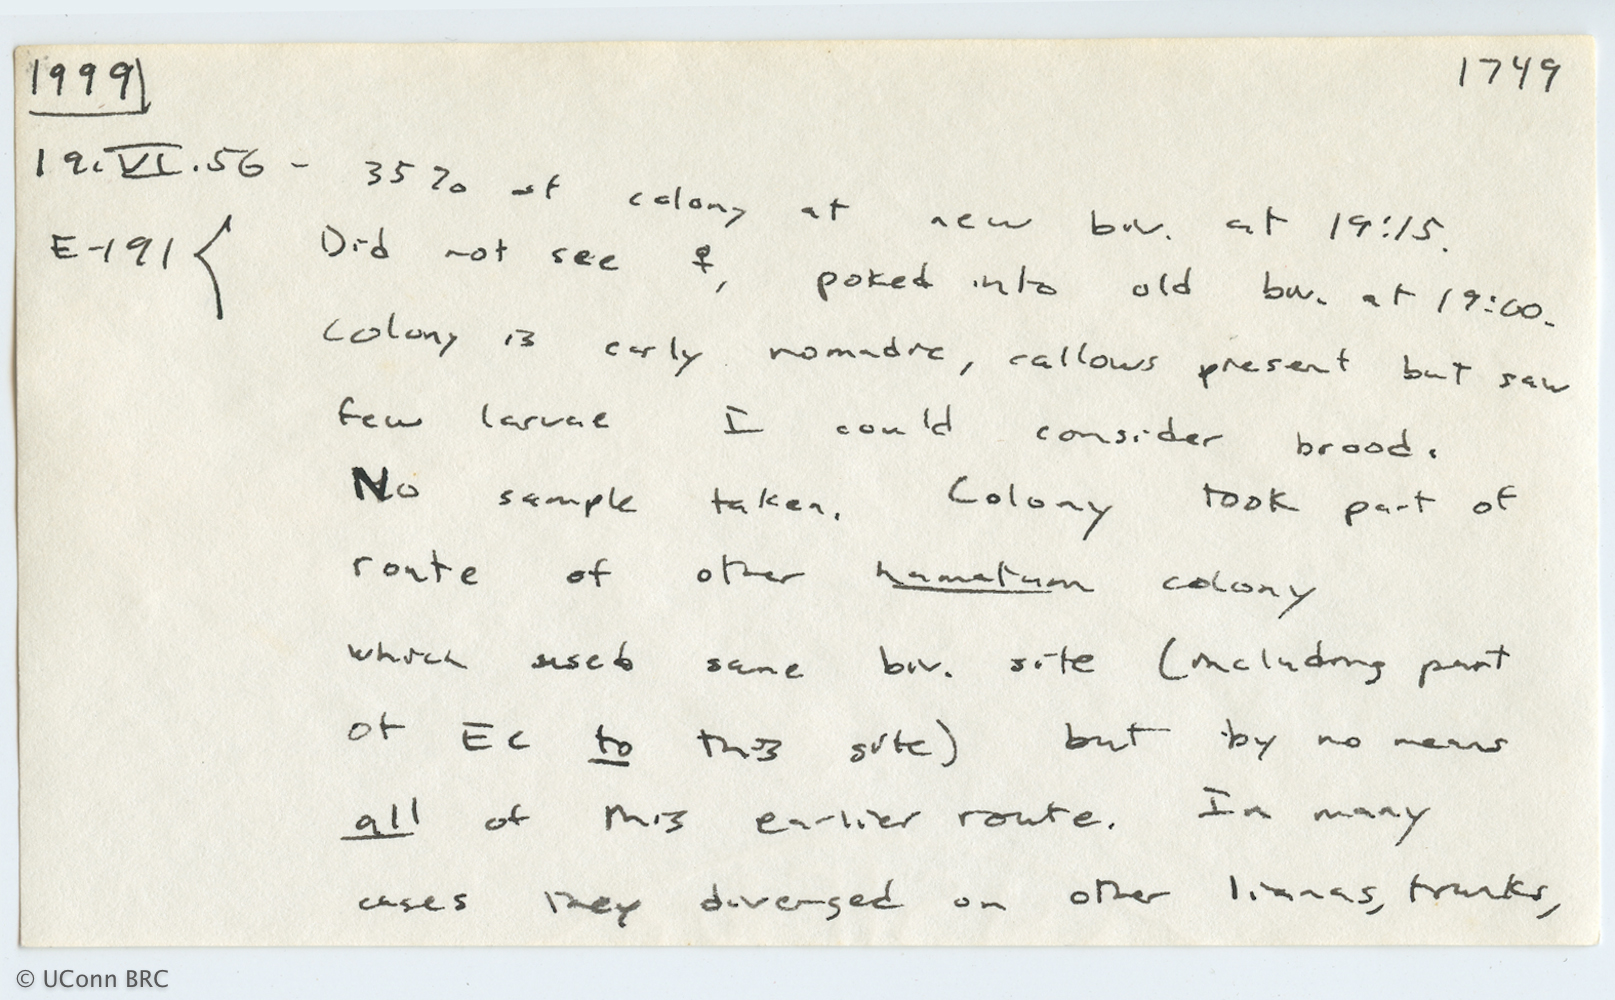 1999 1749
19.VI.56 - 35% of colony at new biv. at 19:15.
E-191 { Did not see ♀, poked into old biv. at 19:00.
Colony is early nomadic, callows present but saw
few larvae I could consider brood.
No sample taken. Colony took part of
route of other hamatum colony
which used same biv. site (including part
of EC to this site) but by no means
all of this earlier route. In many
cases they diverged on other lianas, trunks,
© UConn BRC